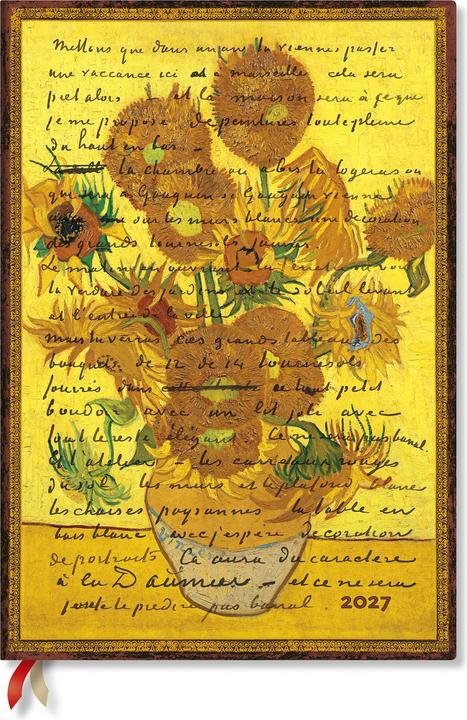 Mettons que dans un an tu viennes passer
une vaccance ici et a marseille cela sera
pret alors - et la maison sera à ce que
je me propose de peintures toute pleine
du haut en bas. -
la chambre ou alors tu logeras ou
qui sera à Gauguin si Gauguin vienne
aura sur les murs blancs une décoration
des grands tournesols jaunes.
Le matin en ouvrant la fenetre on voit
la verdure des jardins et le soleil levant
et l'entrée de la ville.
mais tu verras ces grands tableaux des
bouquets de 12 de 14 tournesols
fourrés dans ce tout petit
boudoir avec un lit joli avec
tout le reste élégant. Ce ne sera pas banal.
Et l'atelier - les carreaux rouges
du sol les murs et le plafond blancs
les chaises paysannes la table en
bois blanc avec j'espère decoration
de portraits Ça aura du caractere
à la Daumier - et ce ne sera
j'ose te le predire pas banal
VINCENT
2027